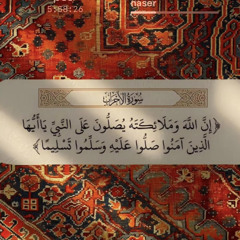 naser
5:58:26
سورة الأحزاب
﴿إِنَّ اللَّهَ وَمَلَائِكَتَهُ يُصَلُّونَ عَلَى النَّبِيِّ يَا أَيُّهَا
الَّذِينَ آمَنُوا صَلُّوا عَلَيْهِ وَسَلِّمُوا تَسْلِيمًا﴾